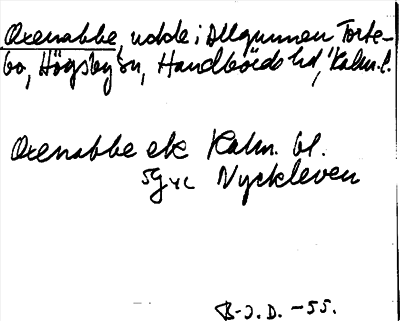 Oxenabbe, udde i Allgunnen Torte-
bo, Högsby sn, Handbörds hd, Kalm. l.
Oxenabbe ek Kalm. bl.
5G 4c Nyckleven
B-J.D. -55.